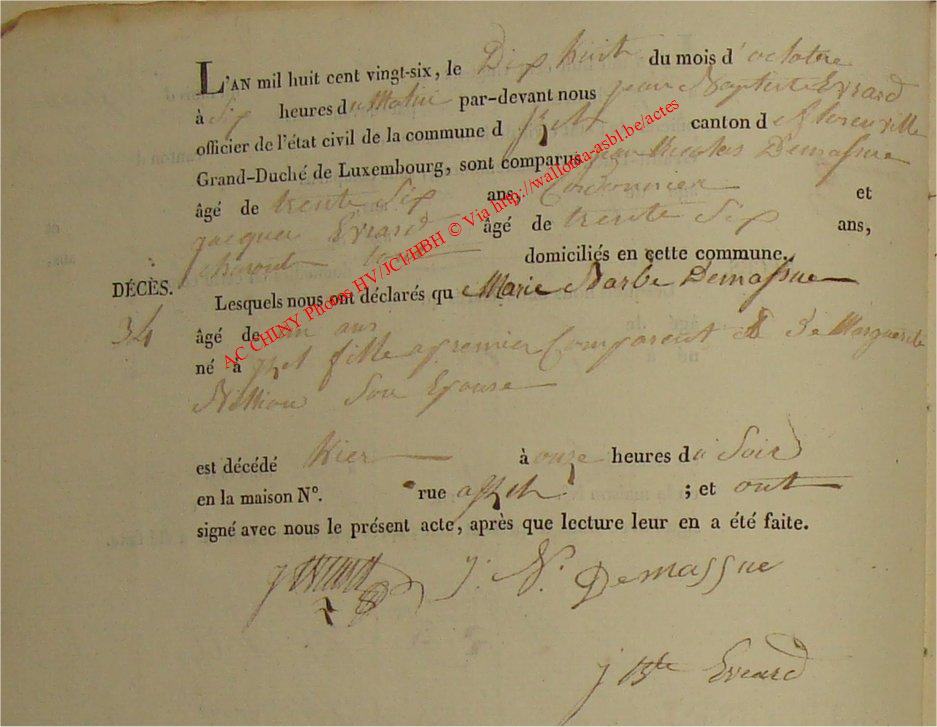 L'AN mil huit cent vingt-six, le Dix huit du mois d'octobre
à Six heures du Matin par-devant nous jean Baptiste Evrard
officier de l'état civil de la commune d canton de florenville
Grand-Duché de Luxembourg, sont comparus jean Nicolas Demassue
âgé de trente Six ans, Cordonnier et
jacques Evrard âgé de trente Six ans,
domiciliés en cette commune.
DÉCÈS.
34
Lesquels nous ont déclarés que Marie Barbe Demassue
âgé de un ans
né à fille premier Comparent Marguerite
Son Epouse
est décédé hier à onze heures du Soir
en la maison N°. rue ; et ont
signé avec nous le présent acte, après que lecture leur en a été faite.
J. N. Demassue
j Bte Evrard
AC CHINY Photos HV/JCl/HBH © Via http://wallonia-asbl.be/actes